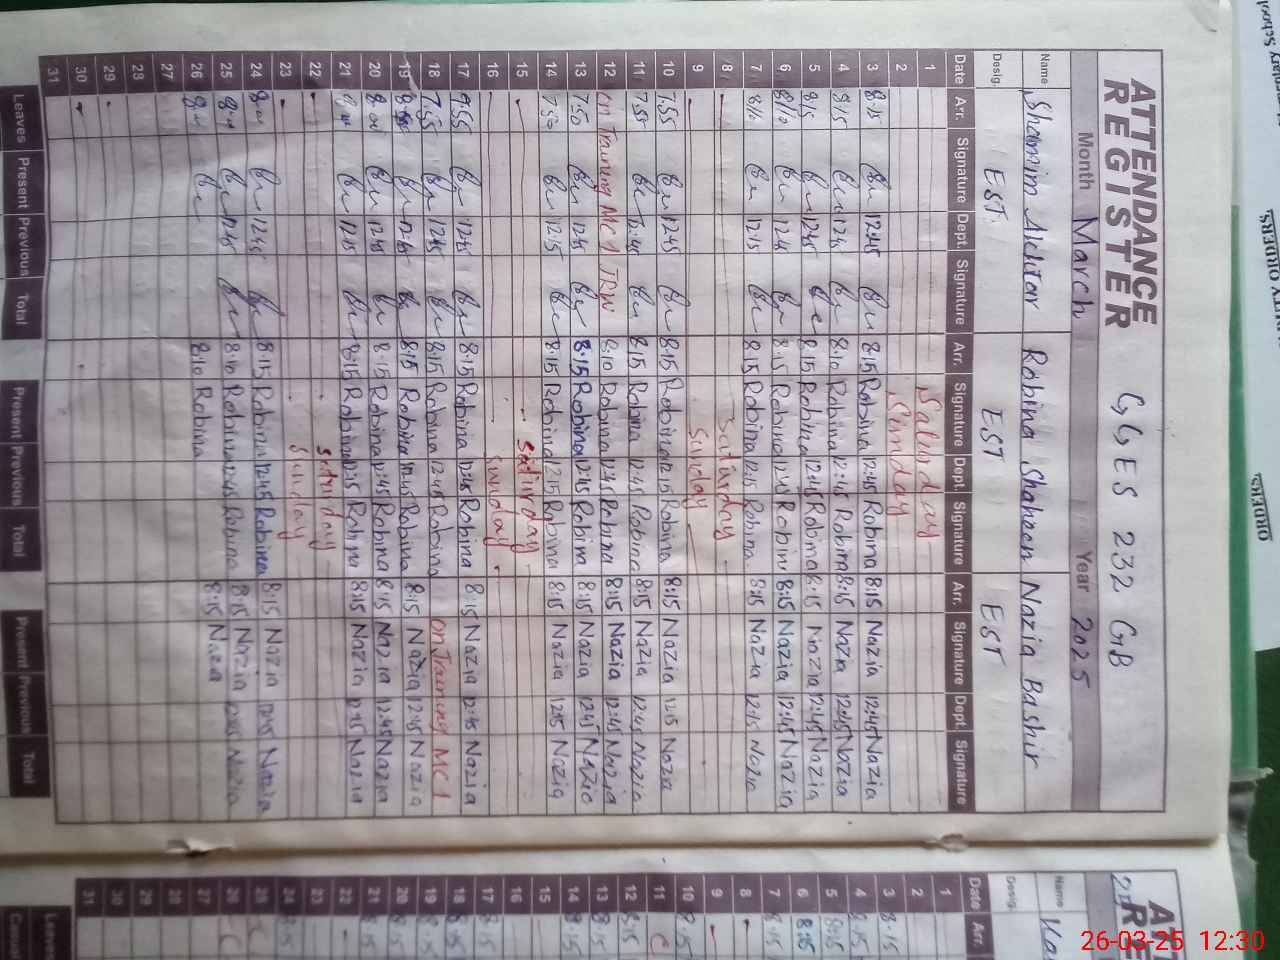 ATTENDANCE REGISTER GGES 232 GB
Month March Year 2025
Name Shamim Akhtar Robina Shaheen Nazia Bashir
Desig. EST. EST EST
Date Arr. Signature Dept. Signature Arr. Signature Dept. Signature Arr. Signature Dept. Signature
1 Saturday
2 Sunday
3 8:15 12:45 8:15 Robina 12:45 Robina 8:15 Nazia 12:45 Nazia
4 8:15 12:45 8:10 Robina 12:45 Robina 8:15 Nazia 12:45 Nazia
5 8:15 12:45 8:15 Robina 12:45 Robina 8:15 Nazia 12:45 Nazia
6 8:10 12:45 8:15 Robina 12:45 Robina 8:15 Nazia 12:45 Nazia
7 8:10 12:15 8:15 Robina 12:15 Robina 8:15 Nazia 12:15 Nazia
8 Saturday
9 Sunday
10 7:55 12:45 8:15 Robina 12:15 Robina 8:15 Nazia 12:15 Nazia
11 7:55 12:45 8:15 Robina 12:45 Robina 8:15 Nazia 12:45 Nazia
12 on Training MC 1 TRW 8:10 Robina 12:45 Robina 8:15 Nazia 12:45 Nazia
13 7:50 12:45 8:15 Robina 12:45 Robina 8:15 Nazia 12:45 Nazia
14 7:50 12:15 8:15 Robina 12:15 Robina 8:15 Nazia 12:15 Nazia
15 Saturday
16 Sunday
17 7:55 12:45 8:15 Robina 12:45 Robina 8:15 Nazia 12:45 Nazia
18 7:55 12:45 8:15 Robina 12:45 Robina on Training MC 1
19 12:45 8:15 Robina 12:45 Robina 8:15 Nazia 12:45 Nazia
20 8:00 12:45 8:15 Robina 12:45 Robina 8:15 Nazia 12:45 Nazia
21 8:00 12:15 8:15 Robina 12:15 Robina 8:15 Nazia 12:15 Nazia
22 Saturday
23 Sunday
24 8:00 12:45 8:15 Robina 12:45 Robina 8:15 Nazia 12:45 Nazia
25 8:00 12:45 8:10 Robina 12:45 Robina 8:15 Nazia 12:45 Nazia
26 8:00 8:10 Robina 8:15 Nazia
27
28
29
30
31
Leaves Present Previous Total Present Previous Total Present Previous Total
Name
Desig.
Date Arr.
1
2
3 8:15
4 8:15
5 8:15
6 8:15
7 8:15
8
9
10 8:15
11 C
12 8:15
13 8:15
14 8:15
15
16
17 8:15
18 8:15
19 8:15
20 8:15
21 8:15
22
23
24 8:15
25 C
26 C
27
28
29
30
31
Leaves
ORDERS
26-03-25 12:30